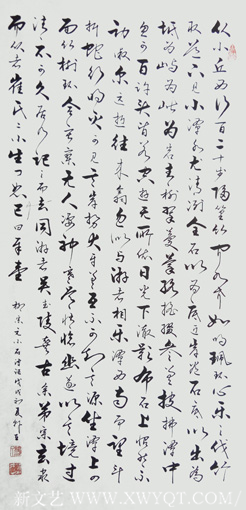 从小丘西行百二十步隔篁竹闻水声如鸣珮环心乐之伐竹
取道下见小潭水尤清冽全石以为底近岸卷石底以出为
坻为屿为嵁为岩青树翠蔓蒙络摇缀参差披拂潭中
鱼可百许头皆若空游无所依日光下澈影布石上怡然不
动俶尔远逝往来翕忽似与游者相乐潭西南而望斗
折蛇行明灭可见其岸势犬牙差互不可知其源坐潭上四
面竹树环合寂寥无人凄神寒骨悄怆幽邃以其境过
清不可久居乃记之而去同游者吴武陵龚古余弟宗玄隶
而从者崔氏二小生曰恕己曰奉壹
柳宗元小石潭记戊戌初夏
新文艺 WWW.XWYQT.COM